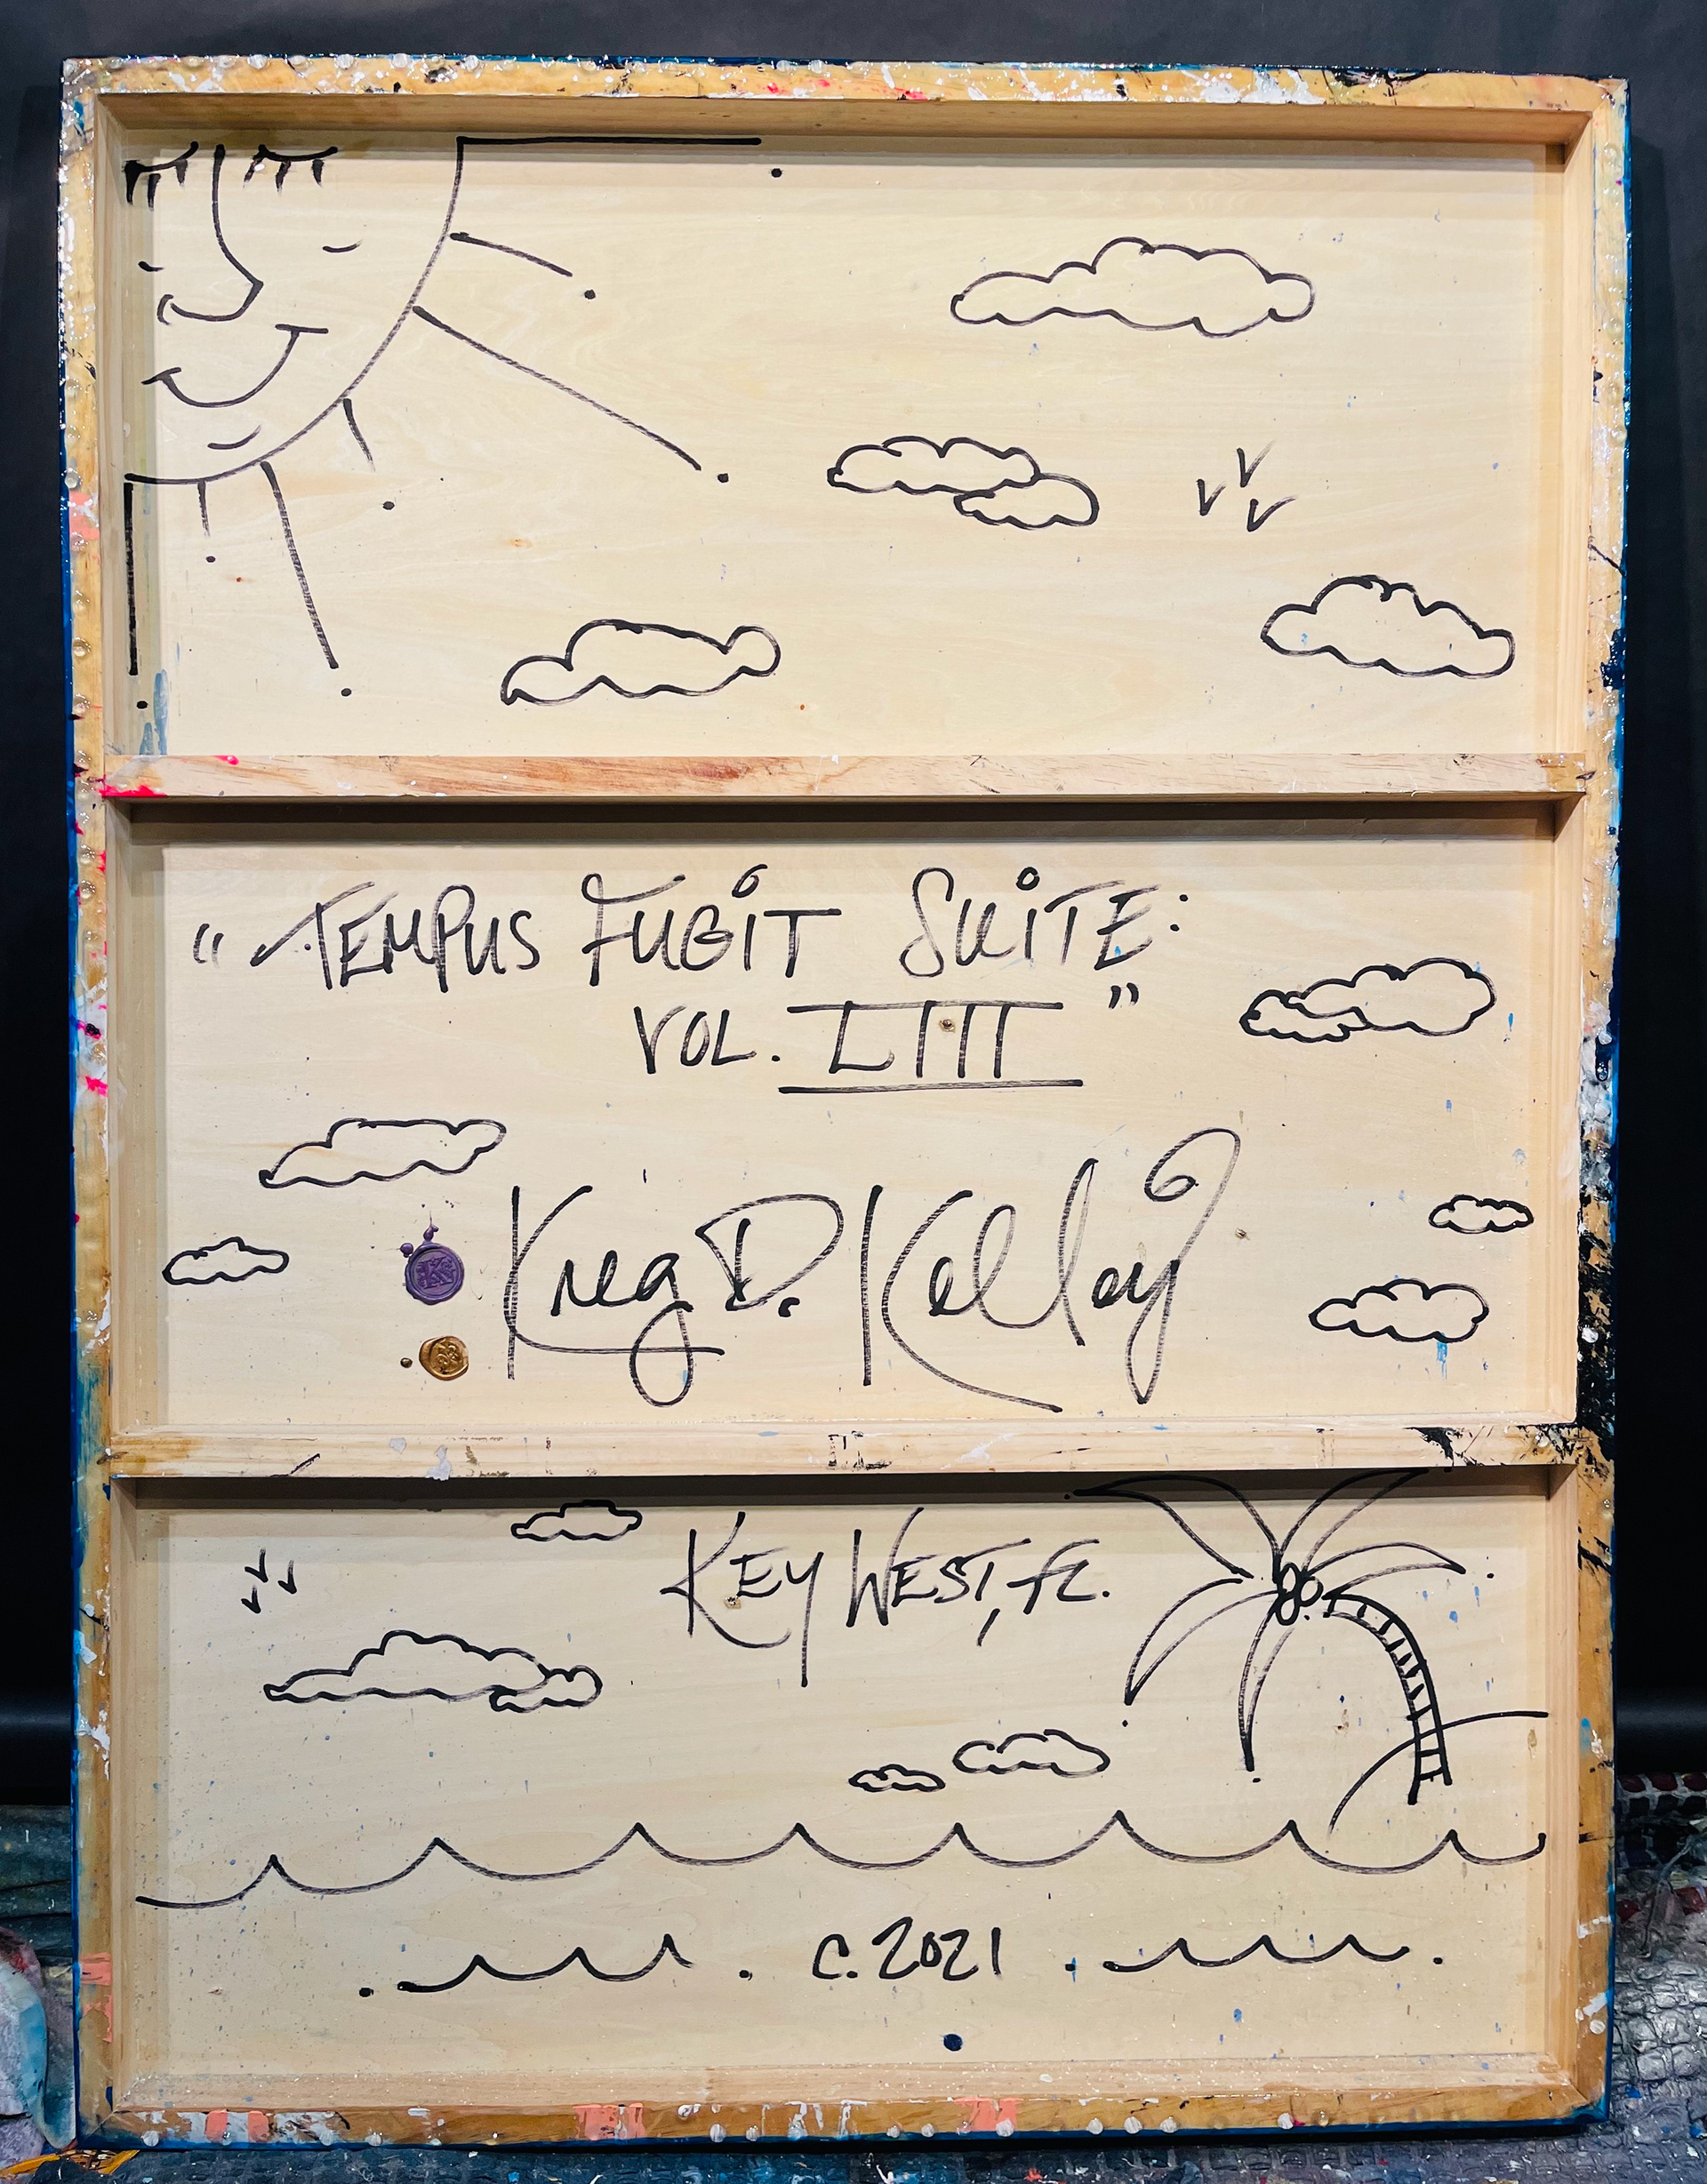 "TEMPUS FUGIT SUITE:
VOL. LIII"
Kreg D. Kelley
KEY WEST, FL.
c. 2021